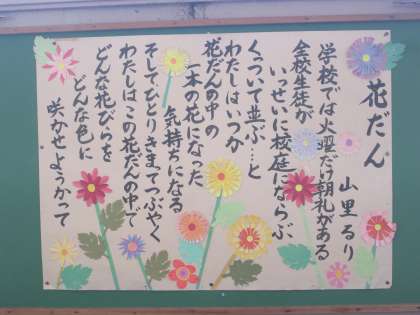 花だん
山里るり
学校では火曜だけ朝礼がある
全校生徒が
いっせいに校庭にならぶ
くっついて並ぶ…と
わたしはいつか
花だんの中の
一本の花になった
気持ちになる
そしてひとりきまてつぶやく
わたしはこの花だんの中で
どんな花びらを
どんな色に
咲かせようかって